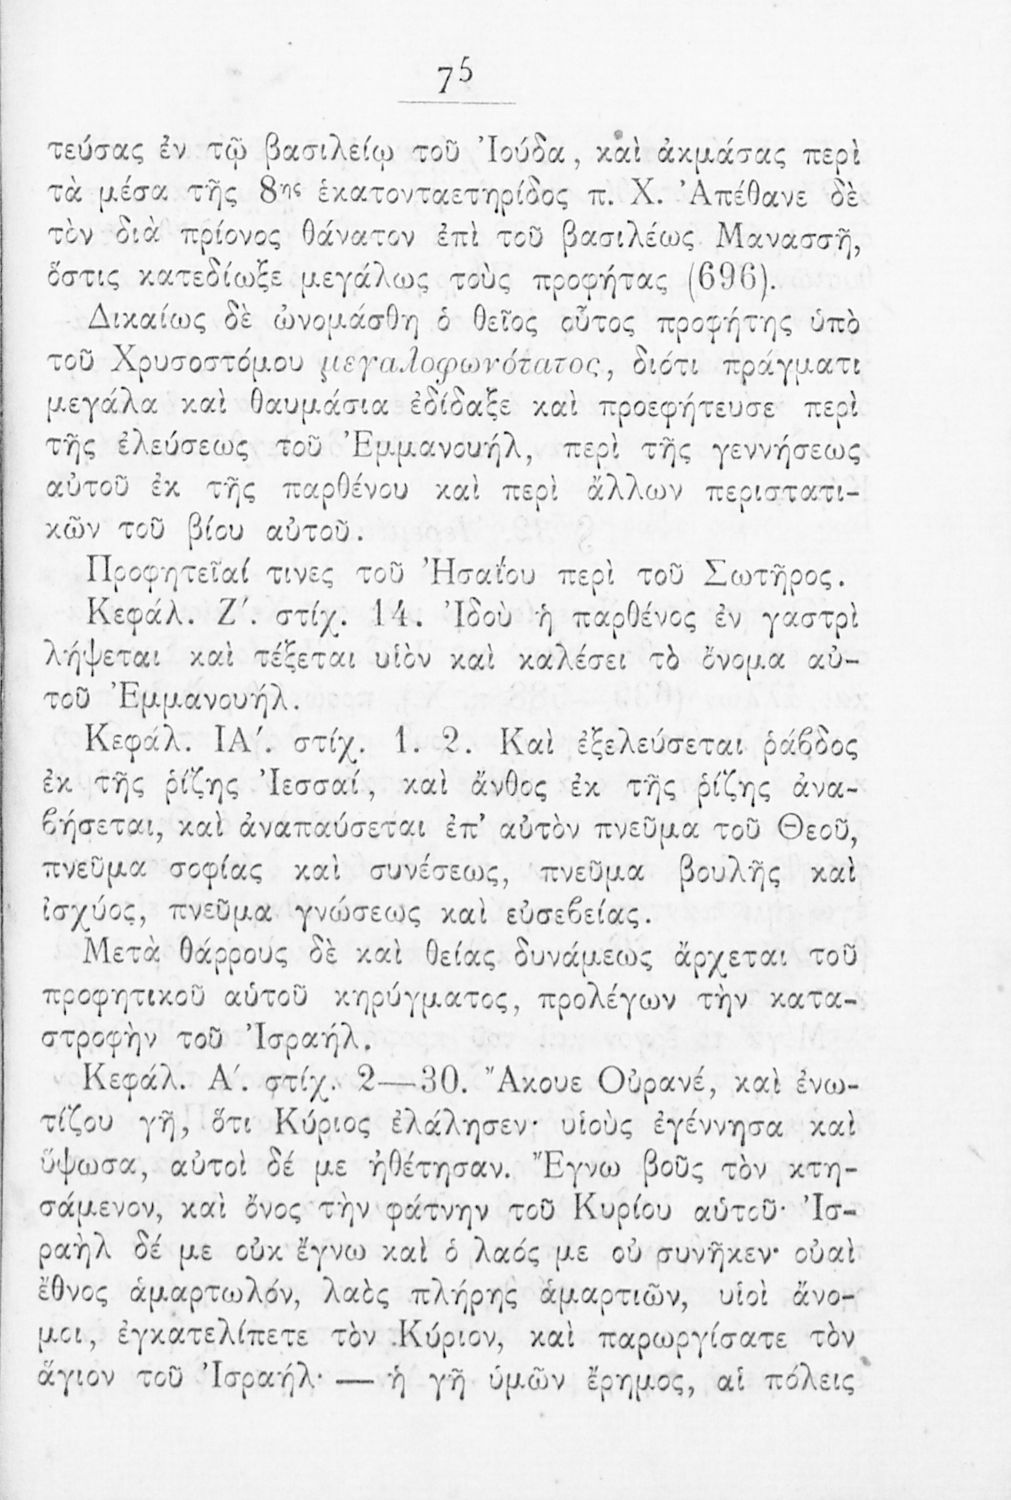 75
τεύσας ἐν τῷ βασιλείῳ τοῦ Ἰούδα, καὶ ἀκμάσας περὶ
τὰ μέσα τῆς 8ης ἑκατονταετηρίδος π. Χ. Ἀπέθανε δὲ
τὸν διὰ πρίονος θάνατον ἐπὶ τοῦ βασιλέως Μανασσῆ,
ὅστις κατεδίωξε μεγάλως τοὺς προφήτας (696).
Δικαίως δὲ ὠνομάσθη ὁ θεῖος οὗτος προφήτης ὑπὸ
τοῦ Χρυσοστόμου μεγαλοφωνότατος, διότι πράγματι
μεγάλα καὶ θαυμάσια ἐδίδαξε καὶ προεφήτευσε περὶ
τῆς ἐλεύσεως τοῦ Ἐμμανουήλ, περὶ τῆς γεννήσεως
αὐτοῦ ἐκ τῆς παρθένου καὶ περὶ ἄλλων περιστατι-
κῶν τοῦ βίου αὐτοῦ.
Προφητεῖαί τινες τοῦ Ἡσαΐου περὶ τοῦ Σωτῆρος.
Κεφάλ. Ζ'. στίχ. 14. Ἰδοὺ ἡ παρθένος ἐν γαστρὶ
λήψεται καὶ τέξεται υἱὸν καὶ καλέσει τὸ ὄνομα αὐ-
τοῦ Ἐμμανουήλ.
Κεφάλ. ΙΑ'. στίχ. 1. 2. Καὶ ἐξελεύσεται ῥάϐδος
ἐκ τῆς ῥίζης Ἰεσσαί, καὶ ἄνθος ἐκ τῆς ῥίζης ἀνα-
ϐήσεται, καὶ ἀναπαύσεται ἐπ' αὐτὸν πνεῦμα τοῦ Θεοῦ,
πνεῦμα σοφίας καὶ συνέσεως, πνεῦμα βουλῆς καὶ
ἰσχύος, πνεῦμα γνώσεως καὶ εὐσεϐείας.
Μετὰ θάρρους δὲ καὶ θείας δυνάμεως ἄρχεται τοῦ
προφητικοῦ αὑτοῦ κηρύγματος, προλέγων τὴν κατα-
στροφὴν τοῦ Ἰσραήλ.
Κεφάλ. Α'. στίχ. 2—30. Ἄκουε Οὐρανέ, καὶ ἐνω-
τίζου γῆ, ὅτι Κύριος ἐλάλησεν· υἱοὺς ἐγέννησα καὶ
ὕψωσα, αὐτοὶ δέ με ἠθέτησαν. Ἔγνω βοῦς τὸν κτη-
σάμενον, καὶ ὄνος τὴν φάτνην τοῦ Κυρίου αὑτοῦ· Ἰσ-
ραὴλ δέ με οὐκ ἔγνω καὶ ὁ λαός με οὐ συνῆκεν· οὐαὶ
ἔθνος ἁμαρτωλόν, λαὸς πλήρης ἁμαρτιῶν, υἱοὶ ἄνο-
μοι, ἐγκατελίπετε τὸν Κύριον, καὶ παρωργίσατε τὸν
ἅγιον τοῦ Ἰσραήλ· — ἡ γῆ ὑμῶν ἔρημος, αἱ πόλεις